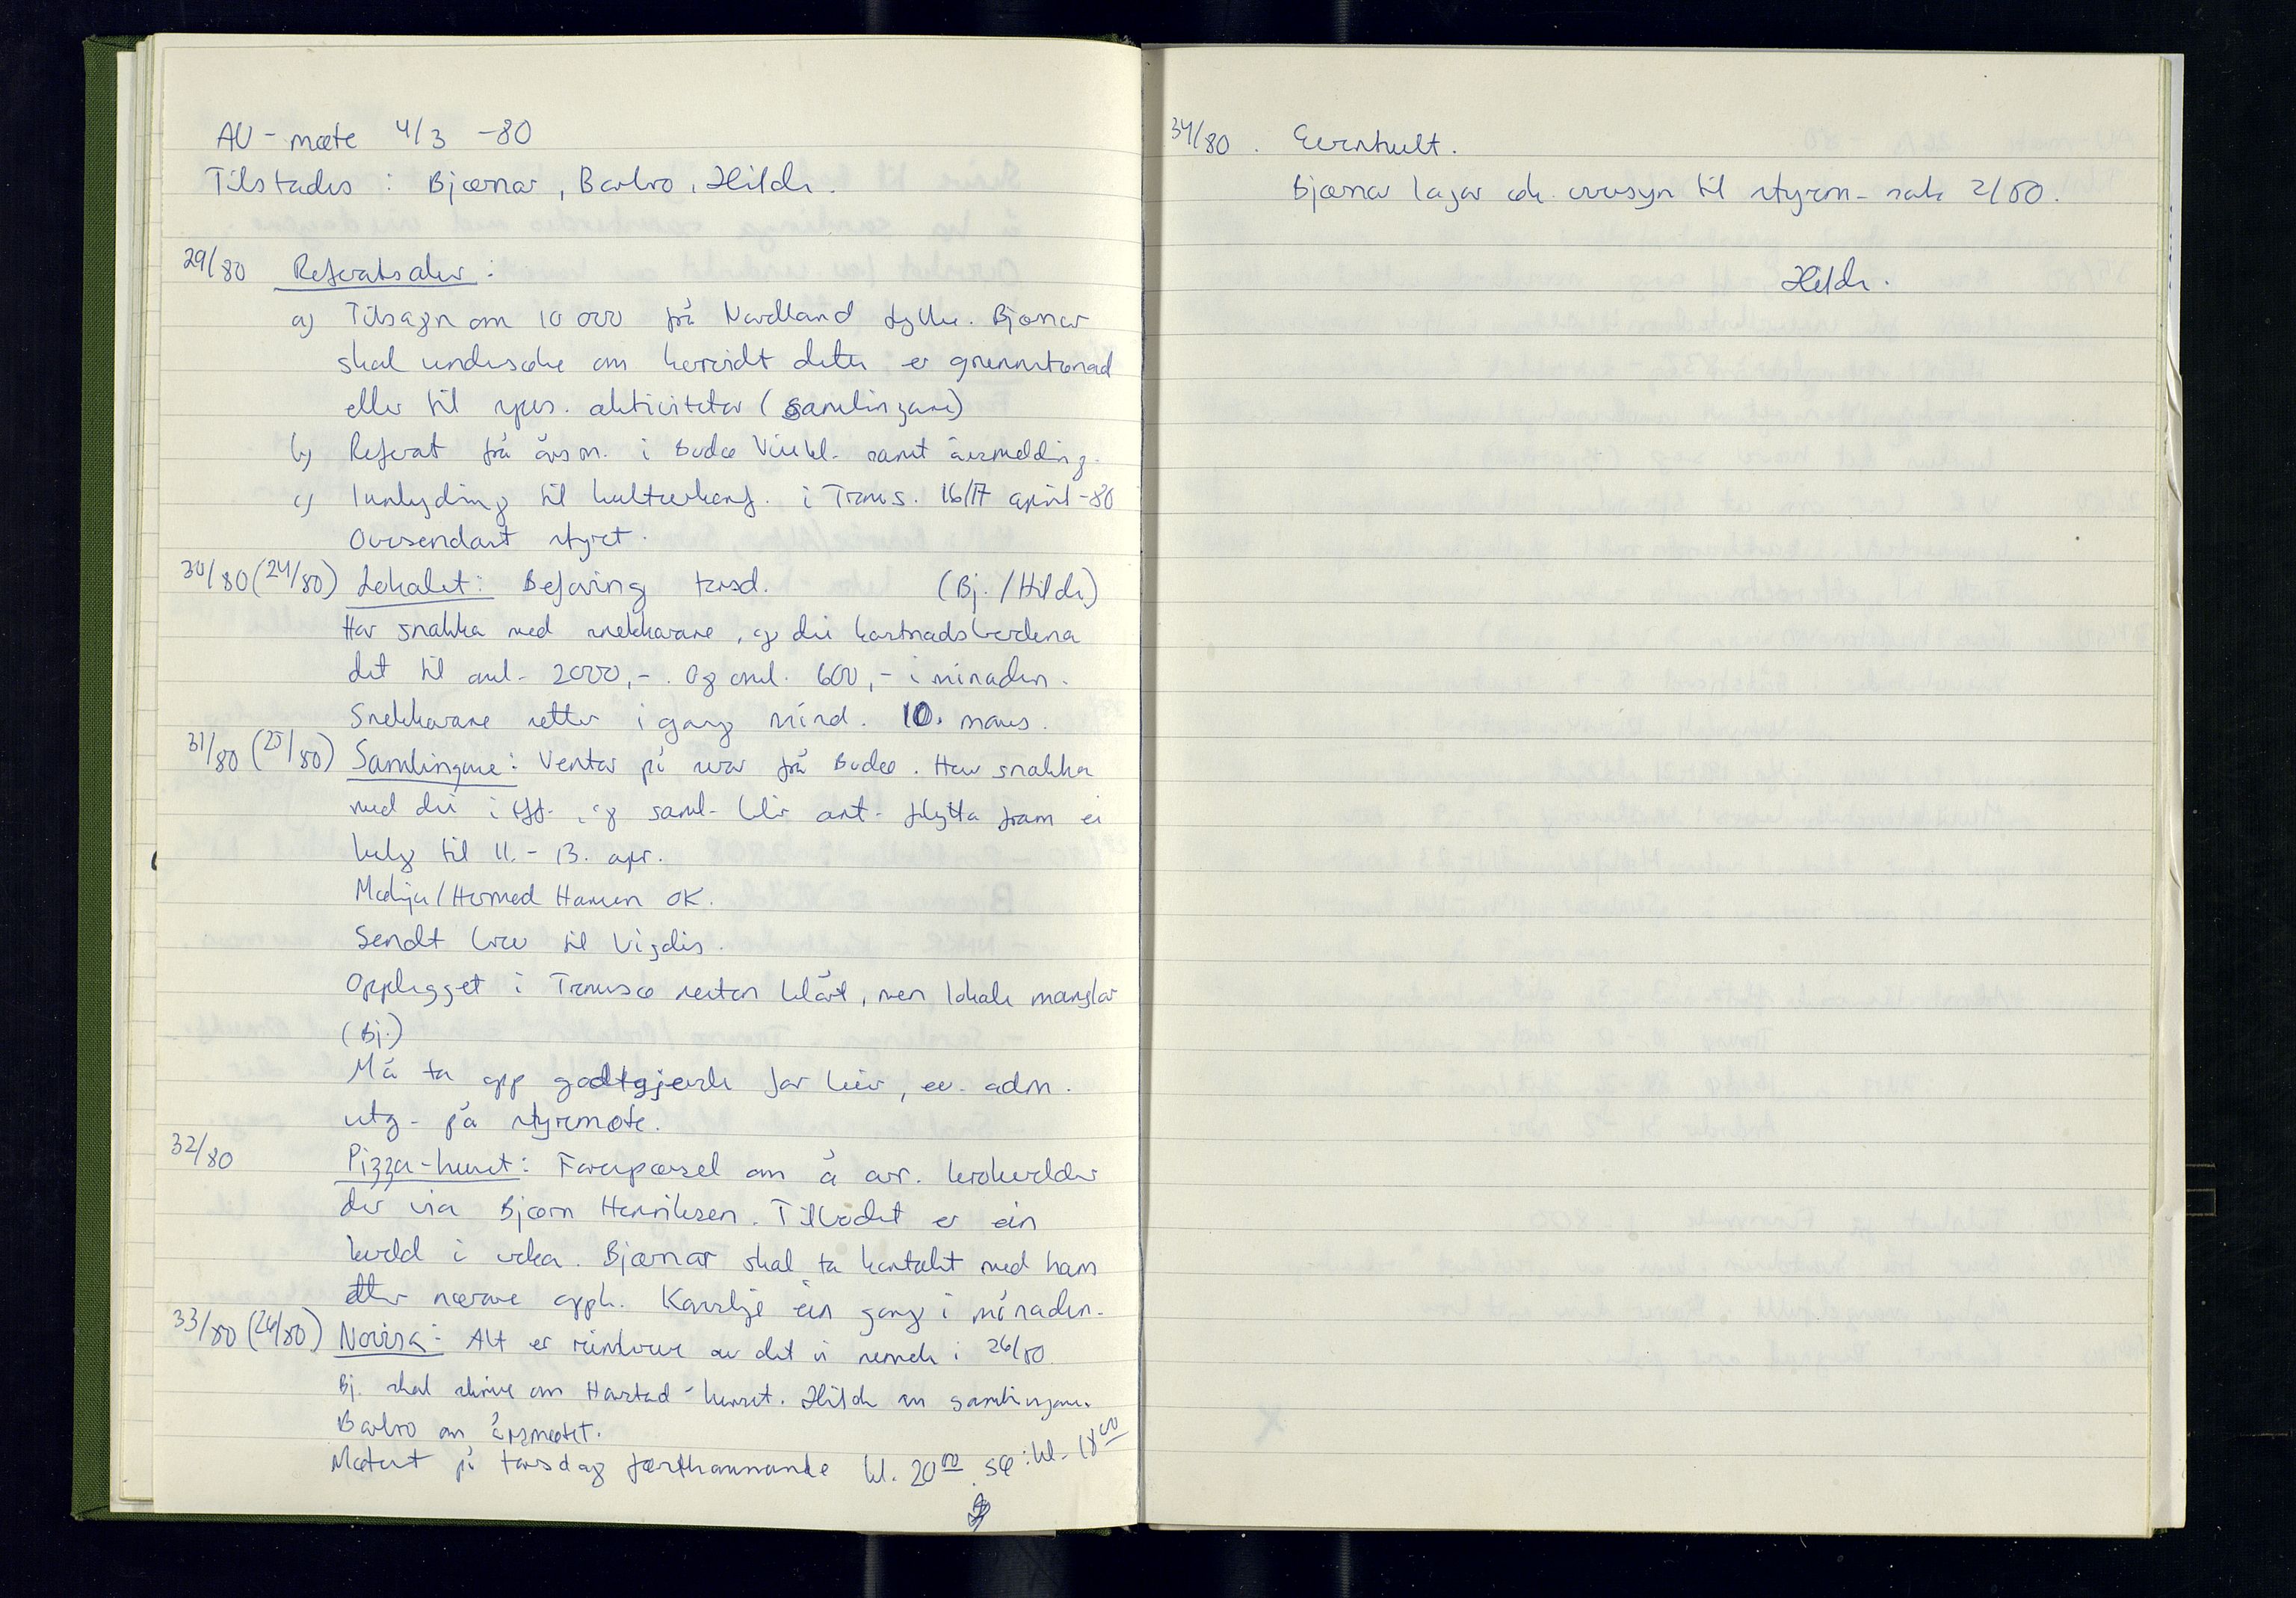 AU-møte 4/3 -80
Tilstades : Bjørnar, Barbro, Hilde.
29/80 Referatsaker :
a) Tilsagn om 10 000 frå Nordland fylke. Bjørnar
skal undersøke om hvorvidt dette er grunnstønad
eller til spes. aktivitetar (samlingane)
b) Referat frå årsm. i Bodø Visekl. samt årsmelding.
c) Innbyding til kulturkonf. i Troms. 16/17 april -80
Oversendast styret.
30/80 (24/80) Lokalet: Befaring torsd. (Bj./Hilde)
Har snakka med snekkarane, og dei kostnadsberekna
det til oml. 2000,-. Og oml. 600,- i månaden.
Snekkarane setter igang månd. 10. mars.
31/80 (25/80) Samlingane: Ventar på svar frå Bodø. Har snakka
med dei i tlf., og saml. blir ant. flytta fram ei
helg til 11.-13. apr.
Malija/Havmed Hansen OK.
Sendt brev til Vigdis.
Opplegget i Tromsø nesten klårt, men lokale manglar
(Bj.)
Må ta opp godtgjersle for leir, ev. adm.
utg. på styremøte.
32/80 Pizza-huset: Førespørsel om å arr. visekvelder
der via Bjørn Henriksen. Tilbodet er ein
kveld i veka. Bjørnar skal ta kontakt med ham
etter nærare oppl. Kanskje ein gang i månaden.
33/80 (26/80) Novisa: Alt er i rute av det vi nemnde i 26/80
Bj. skal skrive om Harstad-kurset. Hilde om samlingane.
Barbro om årsmøtet.
Møtast på torsdag førstkommande kl. 20 00. SØ: kl. 18 00
34/80. Eventuelt.
Bjørnar lagar øk. oversyn til styrem. sak 2/80.
Hilde.